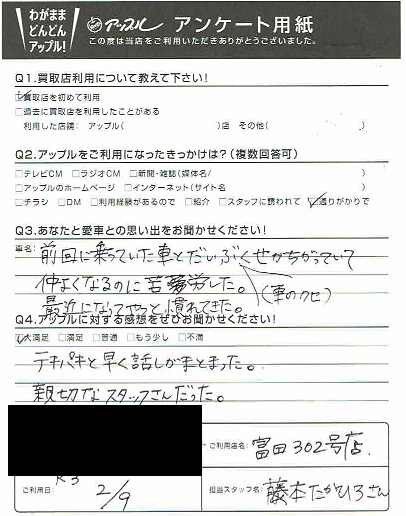 わがまま
どんどん
アップル!
アップル アンケート用紙
この度は当店をご利用いただきありがとうございました。
Q1.買取店利用について教えて下さい!
☑買取店を初めて利用
□過去に買取店を利用したことがある
利用した店舗: アップル( )店 その他( )
Q2.アップルをご利用になったきっかけは?(複数回答可)
□テレビCM □ラジオCM □新聞・雑誌(媒体名/ )
□アップルのホームページ □インターネット(サイト名 )
□チラシ □DM □利用経験があるので □紹介 □スタッフに誘われて ☑通りがかりで
Q3.あなたと愛車との思い出をお聞かせください!
車名:
前回に乗っていた車とだいぶくせがちがっていて
仲よくなるのに苦労した。
(車のクセ)
最近になってやっと慣れてきた。
Q4.アップルに対する感想をぜひお聞かせください!
☑大満足 □満足 □普通 □もう少し □不満
テキパキと早く話しがまとまった。
親切なスタッフさんだった。
ご利用店名: 富田302号店.
ご利用日: R3 2/9
担当スタッフ名: 藤本たかひろさん